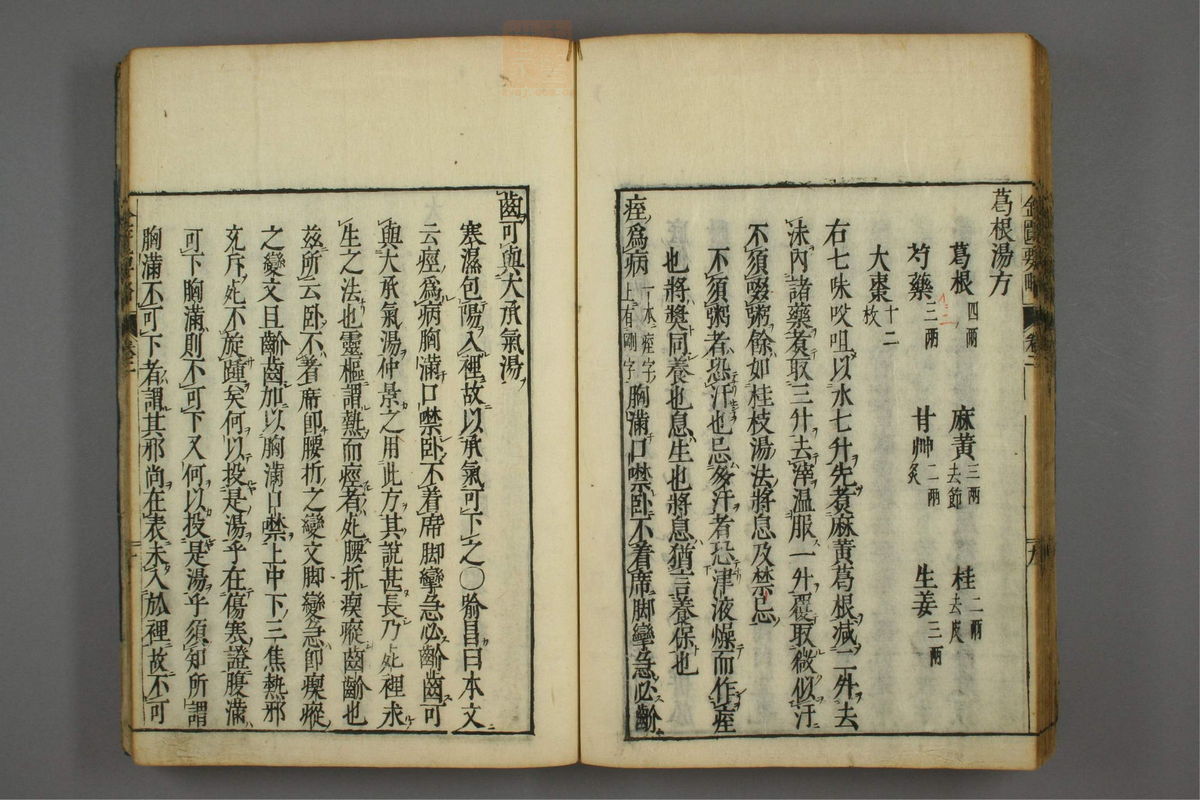 葛根湯方
葛根四兩 麻黃三兩去節 桂二兩去皮
芍藥二兩 甘艸二兩炙 生姜三兩
大棗十二枚
右七味㕮咀以水七升先煑麻黃葛根減二升去
沫內諸藥煑取三升去滓温服一升覆取微似汗
不須啜粥餘如桂枝湯法將息及禁忌
不須粥者恐汗也忌多汗者恐津液燥而作痓
也將奬同養也息生也將息猶言養保也
痓爲病一本痓字上有剛字胸滿口噤卧不着席脚攣急必齘
齒可與大承氣湯
寒濕包陽入裡故以承氣可下之〇喻昌曰本文
云痙爲病胸滿口噤卧不着席脚攣急必齘齒可
與大承氣湯仲景之用此方其說甚長乃死裡求
生之法也靈樞謂熱而痙者死腰折瘈瘲齒齘也
茲所云卧不着席卽腰折之變文脚攣急卽瘈瘲
之變文且齘齒加以胸滿口噤上中下三焦熱邪
充斥死不旋踵矣何以投是湯乎在傷寒證腹滿
可下胸滿則不可下又何以投是湯乎須知所謂
胸滿不可下者謂其邪尚在表未入於裡故不可